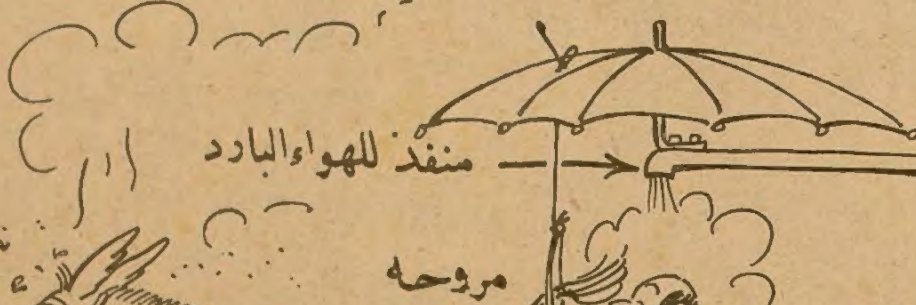 منفذ للهواء البارد
مروحه